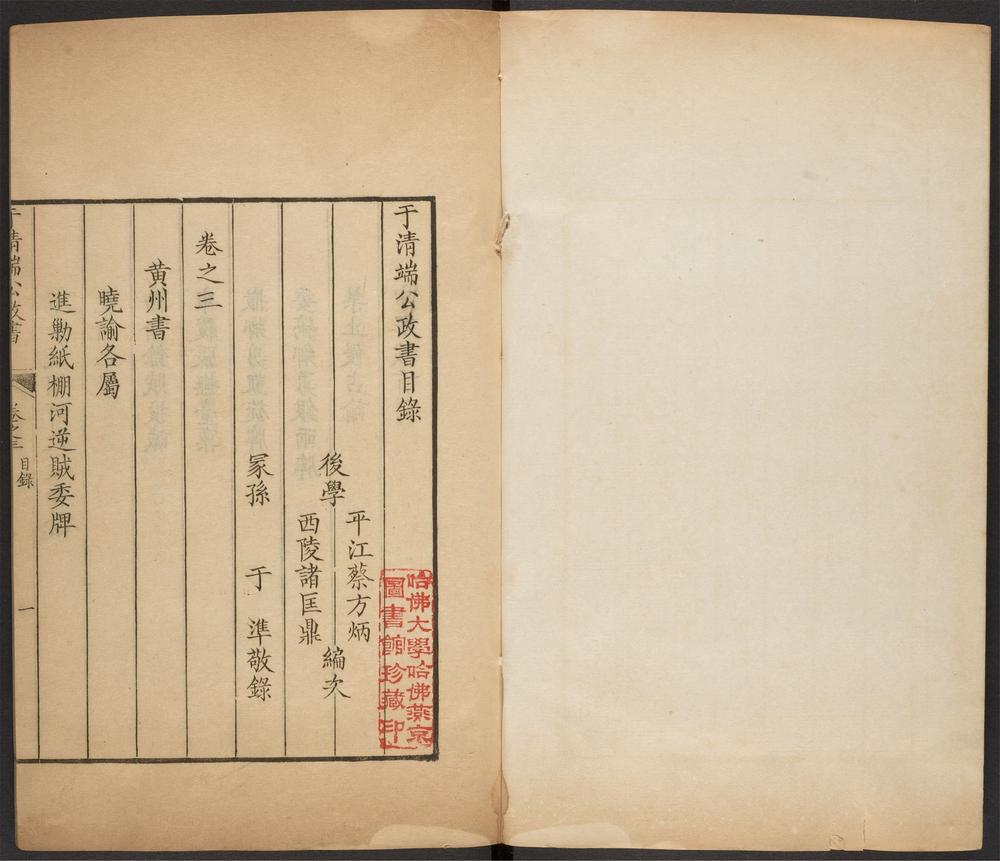 于清端公政書目錄
後學
平江蔡方炳
西陵諸匡鼎
編次
冢孫 于 準敬錄
卷之三
黃州書
曉諭各屬
進勦紙棚河逆賊委牌
于清端公政書 卷之三 目錄 一
哈佛大學哈佛燕京
圖書館珍藏印